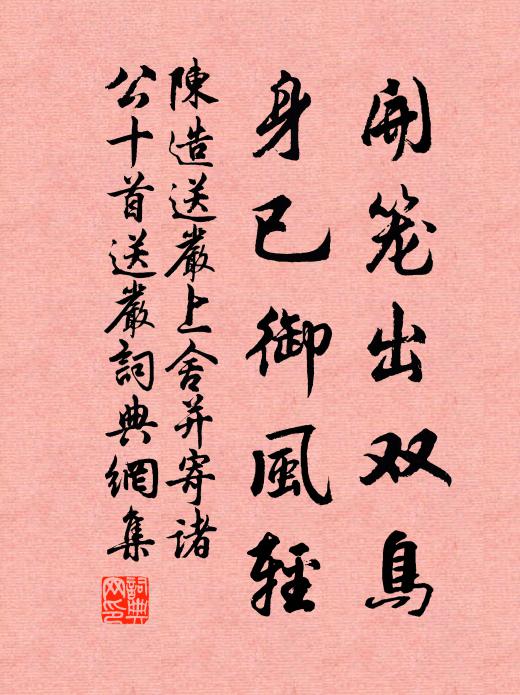 開笼出双鳥
身已御風輕
陳造送嚴上舍并寄諸
公十首送嚴詞典網集
詞典
网印